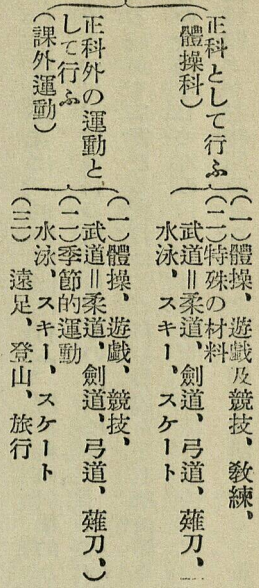 正科として行ふ
(體操科)
(一)體操、遊戯及競技、敎練、
(二)特殊の材料
武道=柔道、劍道、弓道、薙刀、
水泳、スキー、スケート
正科外の運動と
して行ふ
(課外運動)
(一)體操、遊戲、競技、
武道=柔道、劍道、弓道、薙刀、)
(二)季節的運動
水泳、スキー、スケート
(三)遠足、登山、旅行